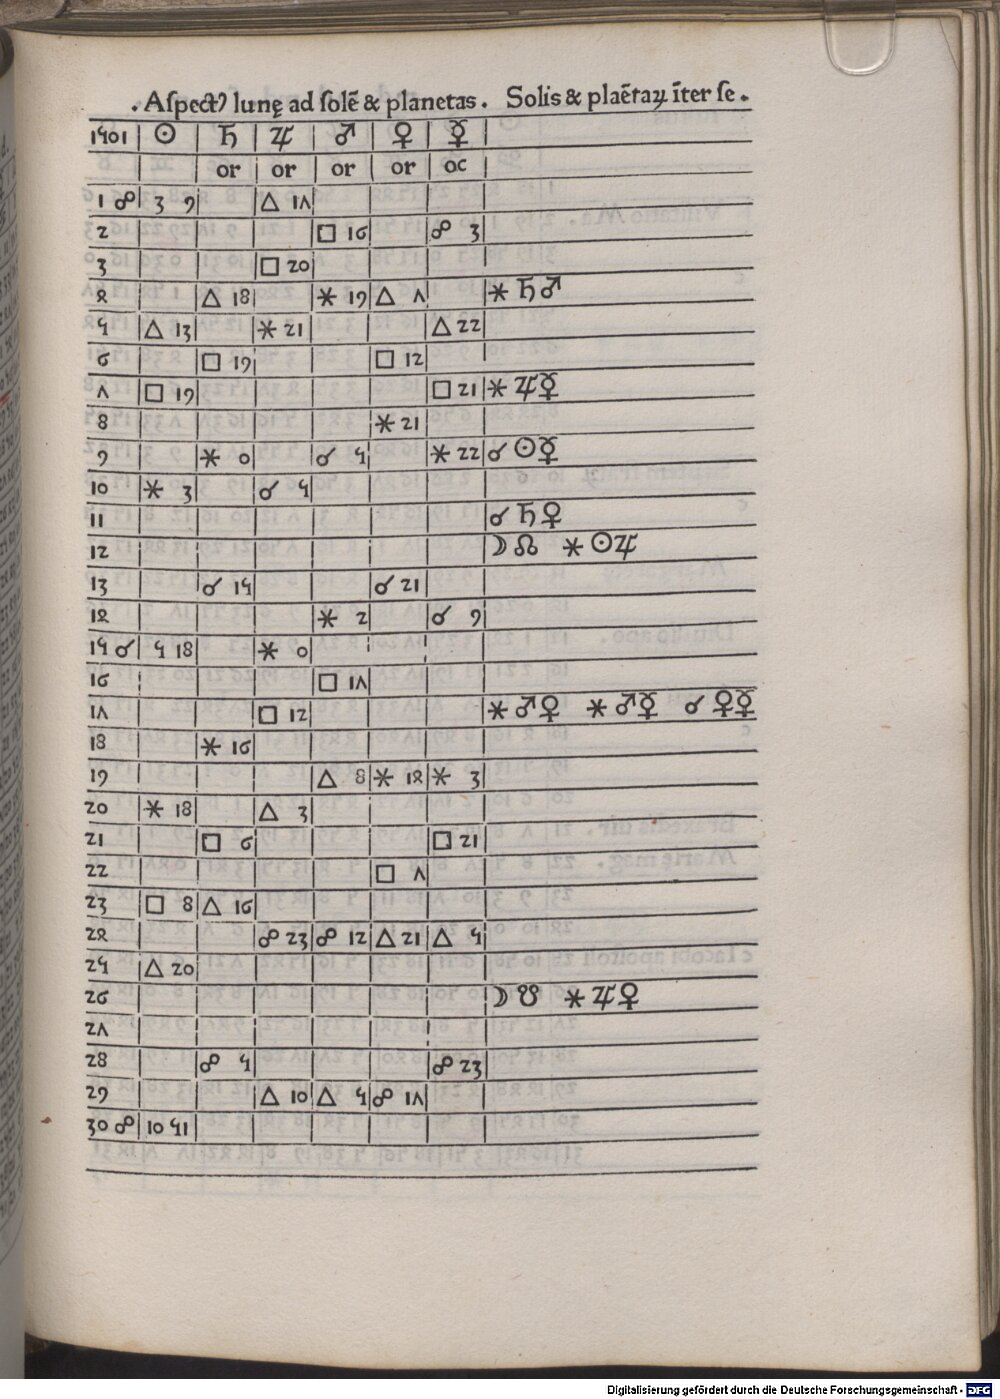 . Aſpectꝰ lunę ad ſolē & planetas . Solis & plaētaꝝ īter ſe .
1501 ☉ ♄ ♃ ♂ ♀ ☿
or or or or oc
1 ☍ 3 9 △ 17
2 □ 16 ☍ 3
3 □ 20
4 △ 18 ⚹ 19 △ 7 ⚹ ♄♂
5 △ 13 ⚹ 21 △ 22
6 □ 19 □ 12
7 □ 19 □ 21 ⚹ ♃☿
8 ⚹ 21
9 ⚹ 0 ☌ 5 ⚹ 22 ☌ ☉☿
10 ⚹ 3 ☌ 5
11 ☌ ♄♀
12 ☽ ☊ ⚹ ☉♃
13 ☌ 15 ☌ 21
14 ⚹ 2 ☌ 9
15 ☌ 5 18 ⚹ 0
16 □ 17
17 □ 12 ⚹ ♂♀ ⚹ ♂☿ ☌ ♀☿
18 ⚹ 16
19 △ 8 ⚹ 14 ⚹ 3
20 ⚹ 18 △ 3
21 □ 6 □ 21
22 □ 7
23 □ 8 △ 16
24 ☍ 23 ☍ 12 △ 21 △ 5
25 △ 20
26 ☽ ☋ ⚹ ♃♀
27
28 ☍ 5 ☍ 23
29 △ 10 △ 5 ☍ 17
30 ☍ 10 51
Digitalisierung gefördert durch die Deutsche Forschungsgemeinschaft - DFG